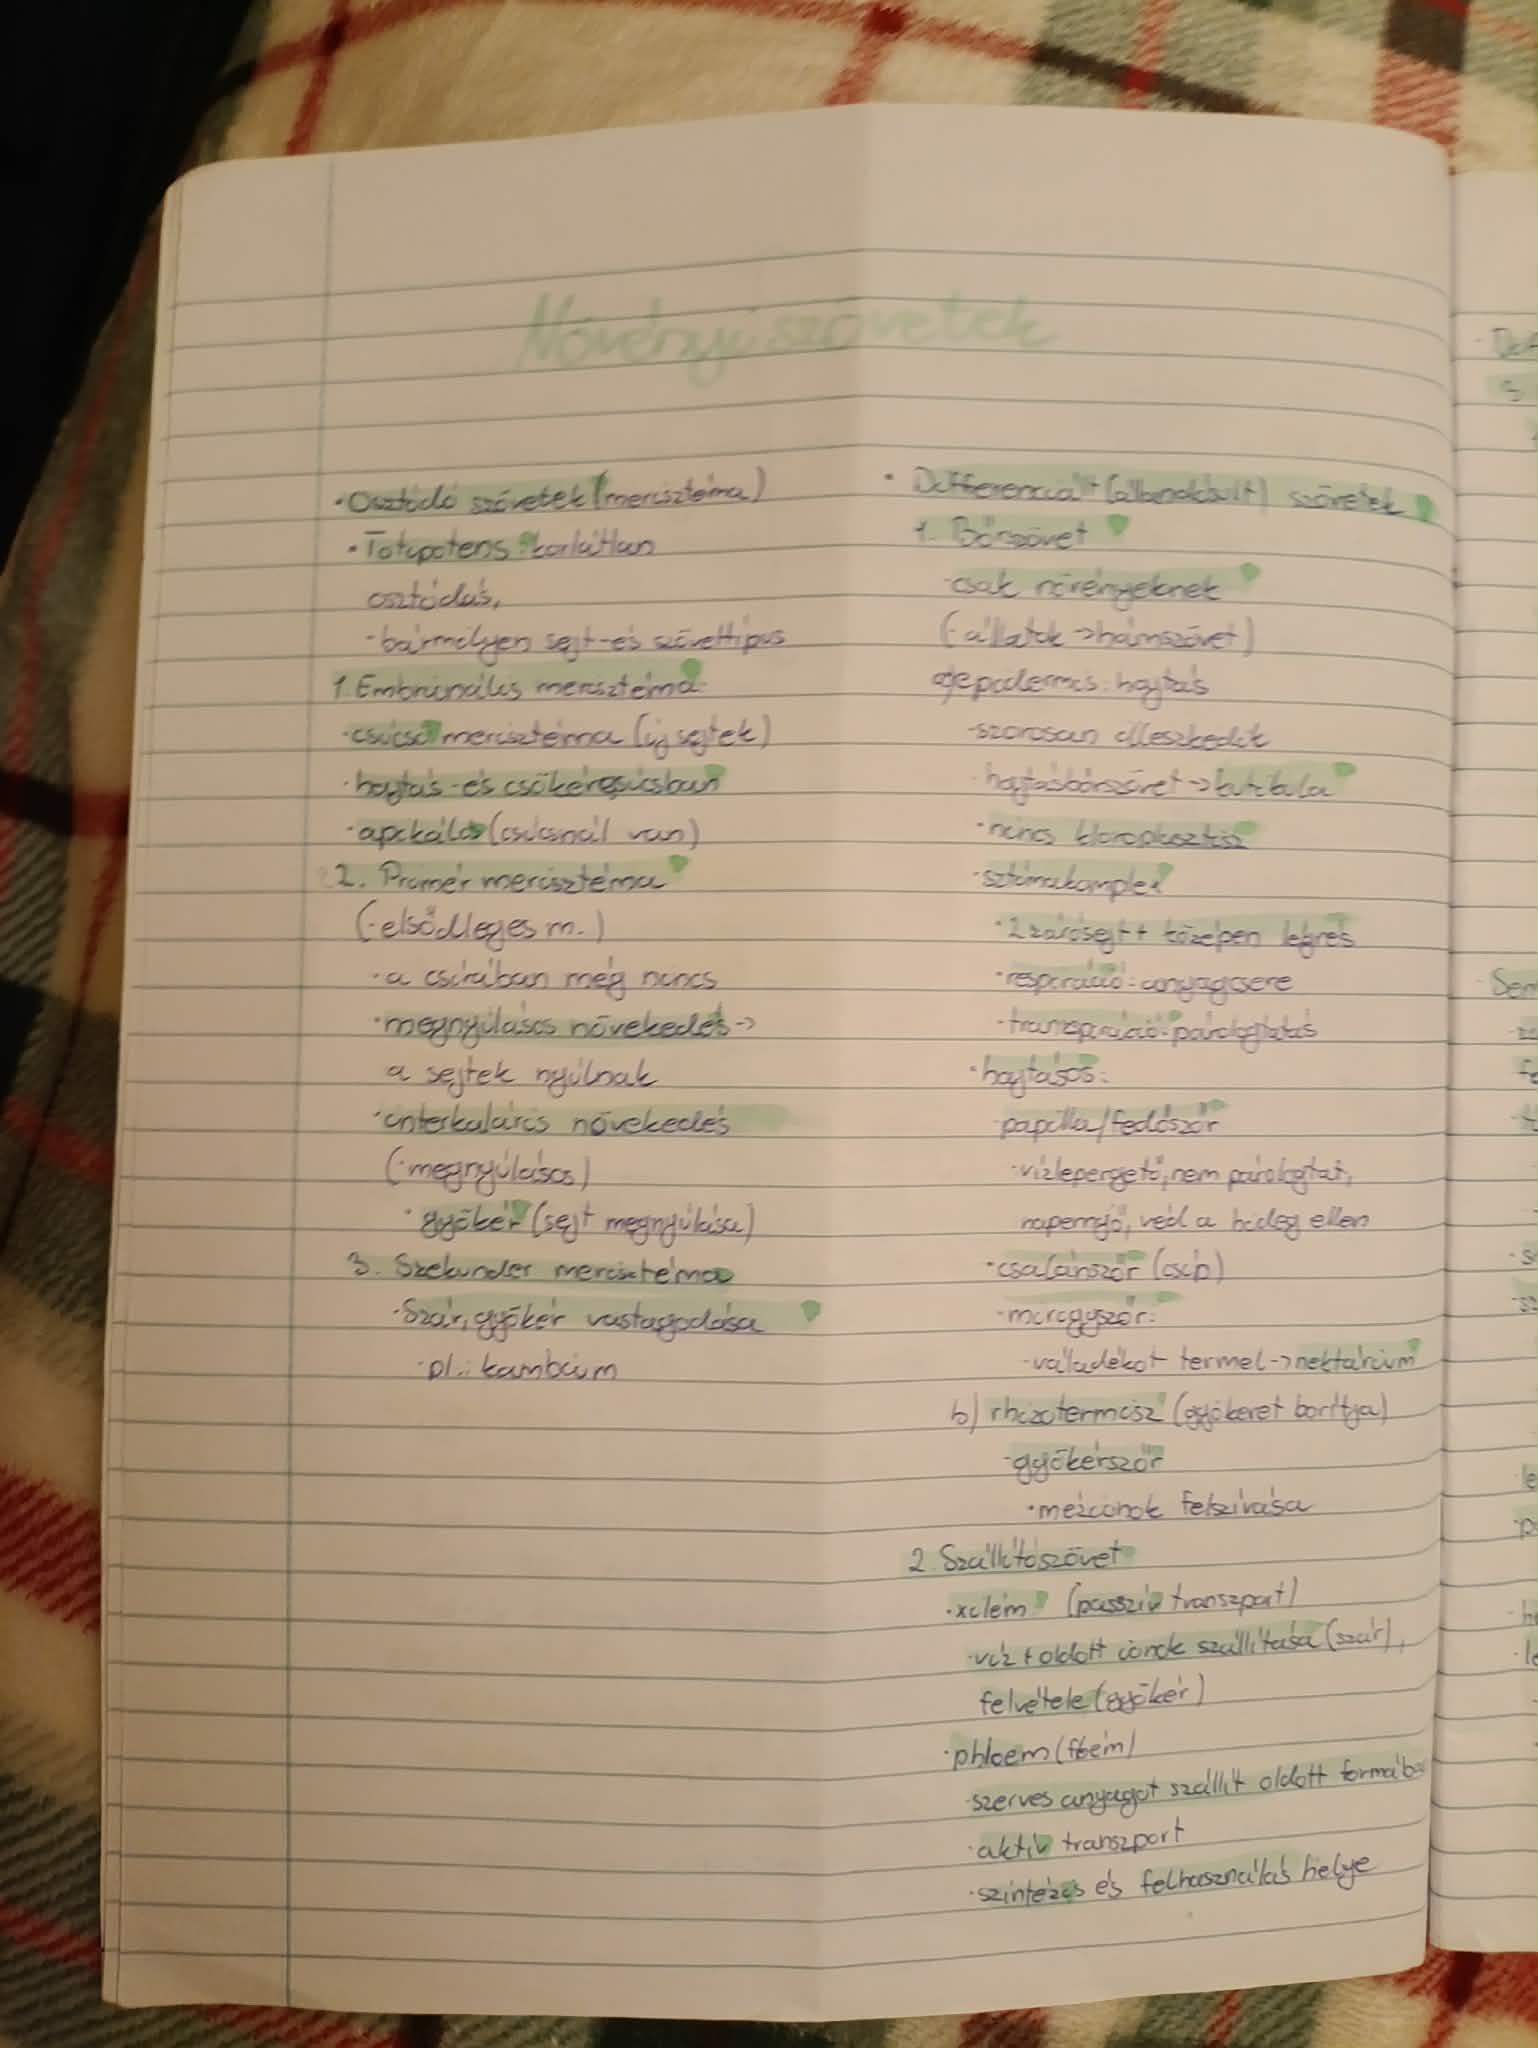 Növényi szövetek
· Osztódó szövetek (merisztéma)
· Totipotens: korlátlan
osztódás,
- bármilyen sejt-és szövettípus
1. Embrionális merisztéma:
· csúcsi merisztéma (új sejtek)
· hajtás-és csökércsúcsban
· apikális (csúcsnál van)
2. Primér merisztéma
(·elsődleges m.)
· a csírában még nincs
· megnyúlásos növekedés ->
a sejtek nyúlnak
· interkaláris növekedés
(·megnyúlásos)
· gyökér (sejt megnyúlása)
3. Szekunder merisztéma
· Szár, gyökér vastagodása
· pl.: kambium
· Differenciált (állandósult) szövetek
1. Bőrszövet
- csak növényeknek
(·állatok -> hámszövet)
a) epidermis: hajtás
- szorosan illeszkedik
· hajtásbőrszövet -> kutikula
· nincs kloroplasztisz
· sztómakomplex
· 2 zárósejt + középen légrés
· respiráció: anyagcsere
· transpiráció: párologtatás
· hajtásos:
papilla/fedőszőr
· vízlepergető, nem párologtat,
napernyő, véd a hideg ellen
· csalánszőr (csíp)
· mirigyszőr:
- váladékot termel -> nektárium
b) rhizotermisz (gyökeret borítja)
- gyökérszőr
· mézionok felszívása
2. Szállítószövet
· xilém (passzív transzport)
· víz + oldott ionok szállítása (szár),
felvétele (gyökér)
· phloem (floém)
- szerves anyagot szállít oldott formában
· aktív transzport
· szintézis és felhasználás helye